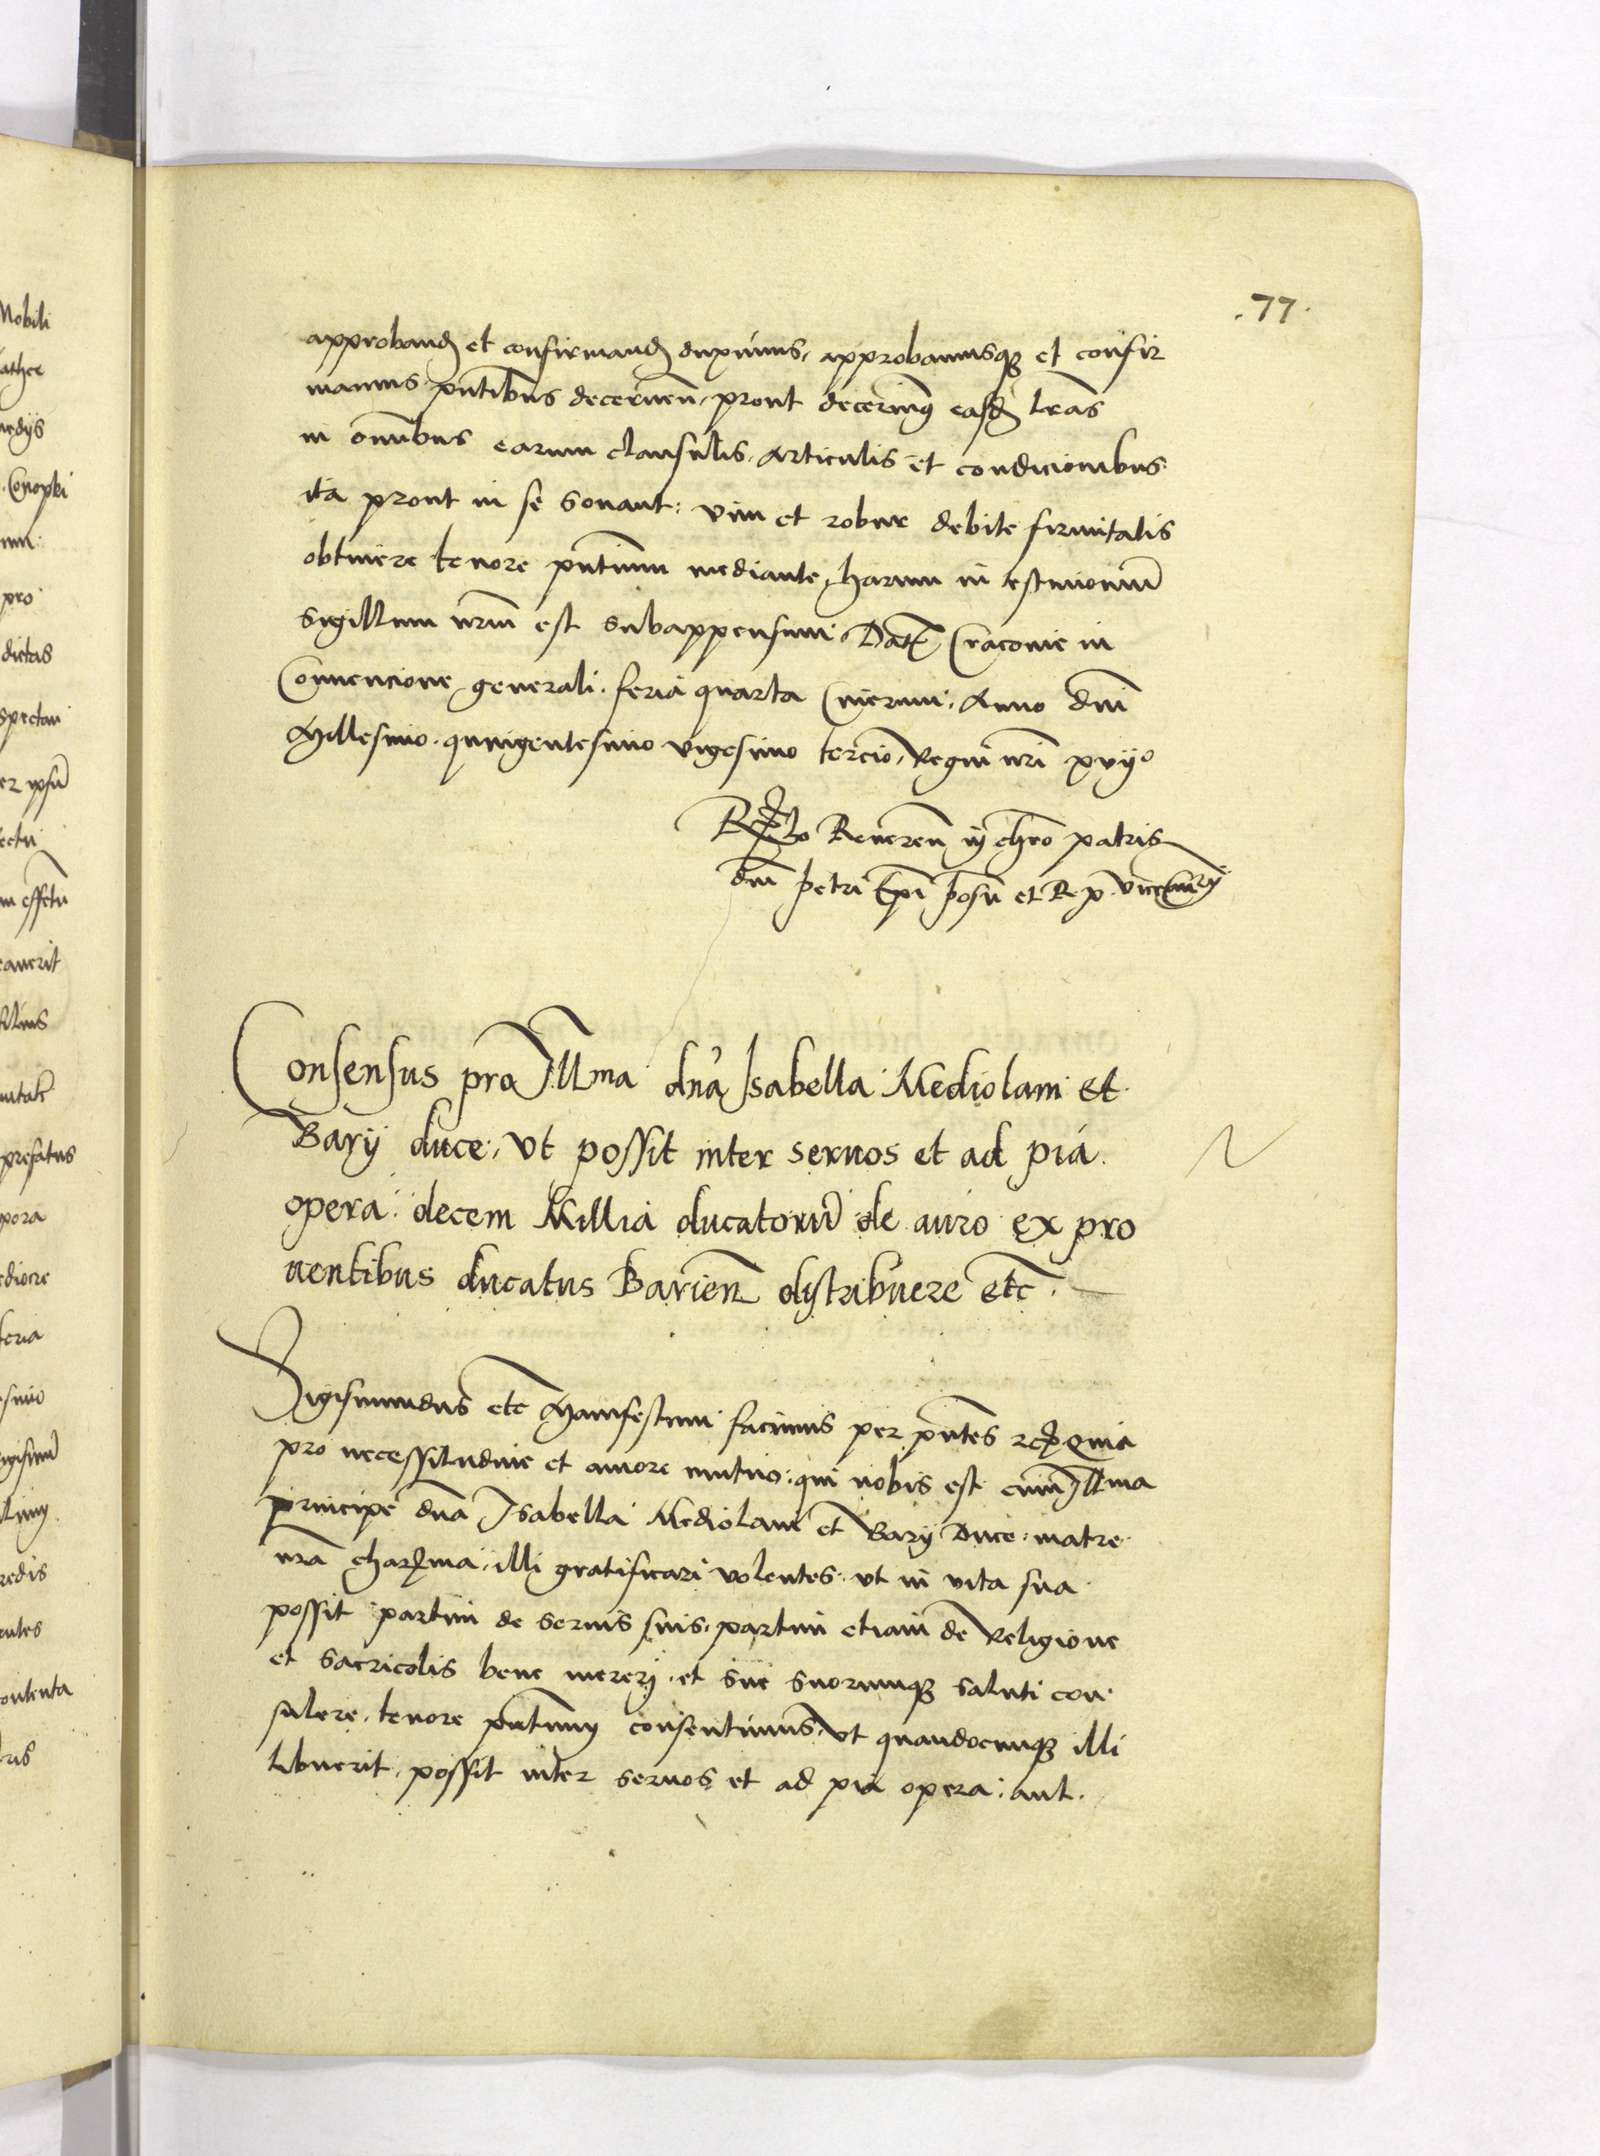 .77.
approband et confirmand duximus, approbamusq et confir
mamus pntibus decernen, prout decernimus easd lras
in omnibus earum clausulis, articulis et condicionibus
ita prout in se sonant: vim et robur debite firmitatis
obtinere tenore pntium mediante, harum in testimonium
sigillum nrm est subappensum. Dat Cracovie in
Convencione generali. feria quarta Cinerum. Anno dni
Millesimo. quingentesimo vigesimo tercio, Regni nri xvijo
Relo Reveren in chro patris
dni petri Epi posn et R p vicecancrij
Consensus pro Illma dna Isabella Mediolani et
Barij duce, vt possit inter seruos et ad pia
opera: decem Millia ducatorum de auro ex pro
uentibus ducatus Barien distribuere etc.
Sigismundus etc Manifestum facimus per pntes rc Quia
pro necessitudine et amore mutuo: qui nobis est cum Illma
principe dna Isabella Mediolani et Barij Duce: matre
nra charma: illi gratificari volentes. vt in vita sua
possit partim de seruis suis, partim etiam de Religione
et sacricolis bene mererj. et sue suorumq saluti con
sulere. tenore pntium consentimus, vt quandocunq illi
libuerit, possit inter seruos et ad pia opera: aut.
Nobili
pro
dictas
spectan
ectu
m effetu
pora
feria
redis
ontenta